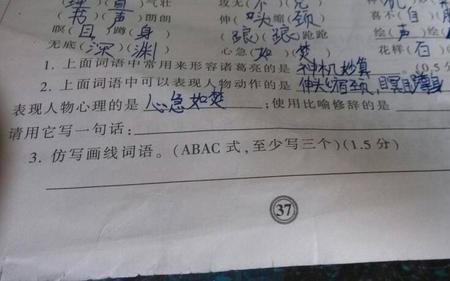 (理直)气壮 攻无(不)克
(书)(声)朗朗 伸(头)缩(颈) 喜不(自)
瞑(目)蹲(身) (踉)(踉)跄跄 绘(声)绘
无底(深)(渊) 心急(如)(焚) 花样(百)
1. 上面词语中常用来形容诸葛亮的是 神机妙算 。(0.5分
2. 上面词语中可以表现人物动作的是 伸头缩颈,瞑目蹲身
表现人物心理的是 心急如焚 ;使用比喻修辞的是
请用它写一句话:
3. 仿写画线词语。(ABAC 式,至少写三个)(1.5 分)
37